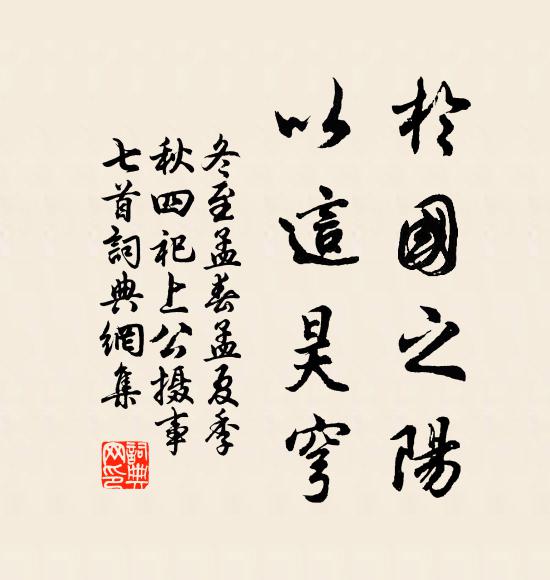 於國之陽
以這昊穹
冬至孟春孟夏季
秋四祀上公摄事
七首詞典網集
詞典网印